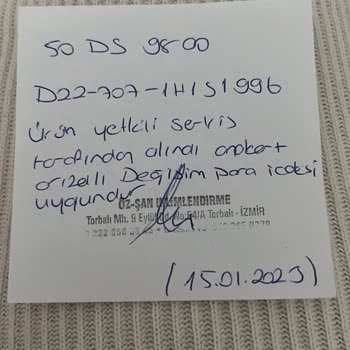 50 DS 9800
D22-707-1H1S1996
Ürün yetkili servis
tarafından alındı anakart
arızalı Değişim para iadesi
uygundur
ÖZ-ŞAN İKLİMLENDİRME
Torbalı Mh. 9 Eylül No:54/A Torbalı - İZMİR
(15.01.2023)